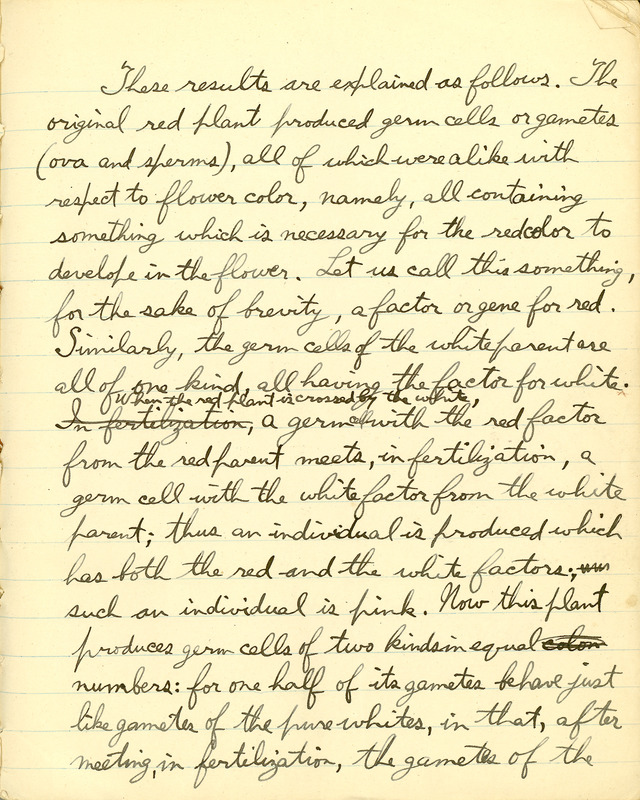 These results are explained as follows. The
original red plant produced germ cells or gametes
(ova and sperms), all of which were alike with
respect to flower color, namely, all containing
something which is necessary for the red color to
develope in the flower. Let us call this something,
for the sake of brevity, a factor or gene for red.
Similarly, the germ cells of the white parent are
all of one kind, all having the factor for white.
When the red plant is crossed by the white,
In fertilization, a germ cell with the red factor
from the red parent meets, in fertilization, a
germ cell with the white factor from the white
parent; thus an individual is produced which
has both the red and the white factors;
such an individual is pink. Now this plant
produces germ cells of two kinds in equal color
numbers: for one half of its gametes behave just
like gametes of the pure whites, in that, after
meeting, in fertilization, the gametes of the